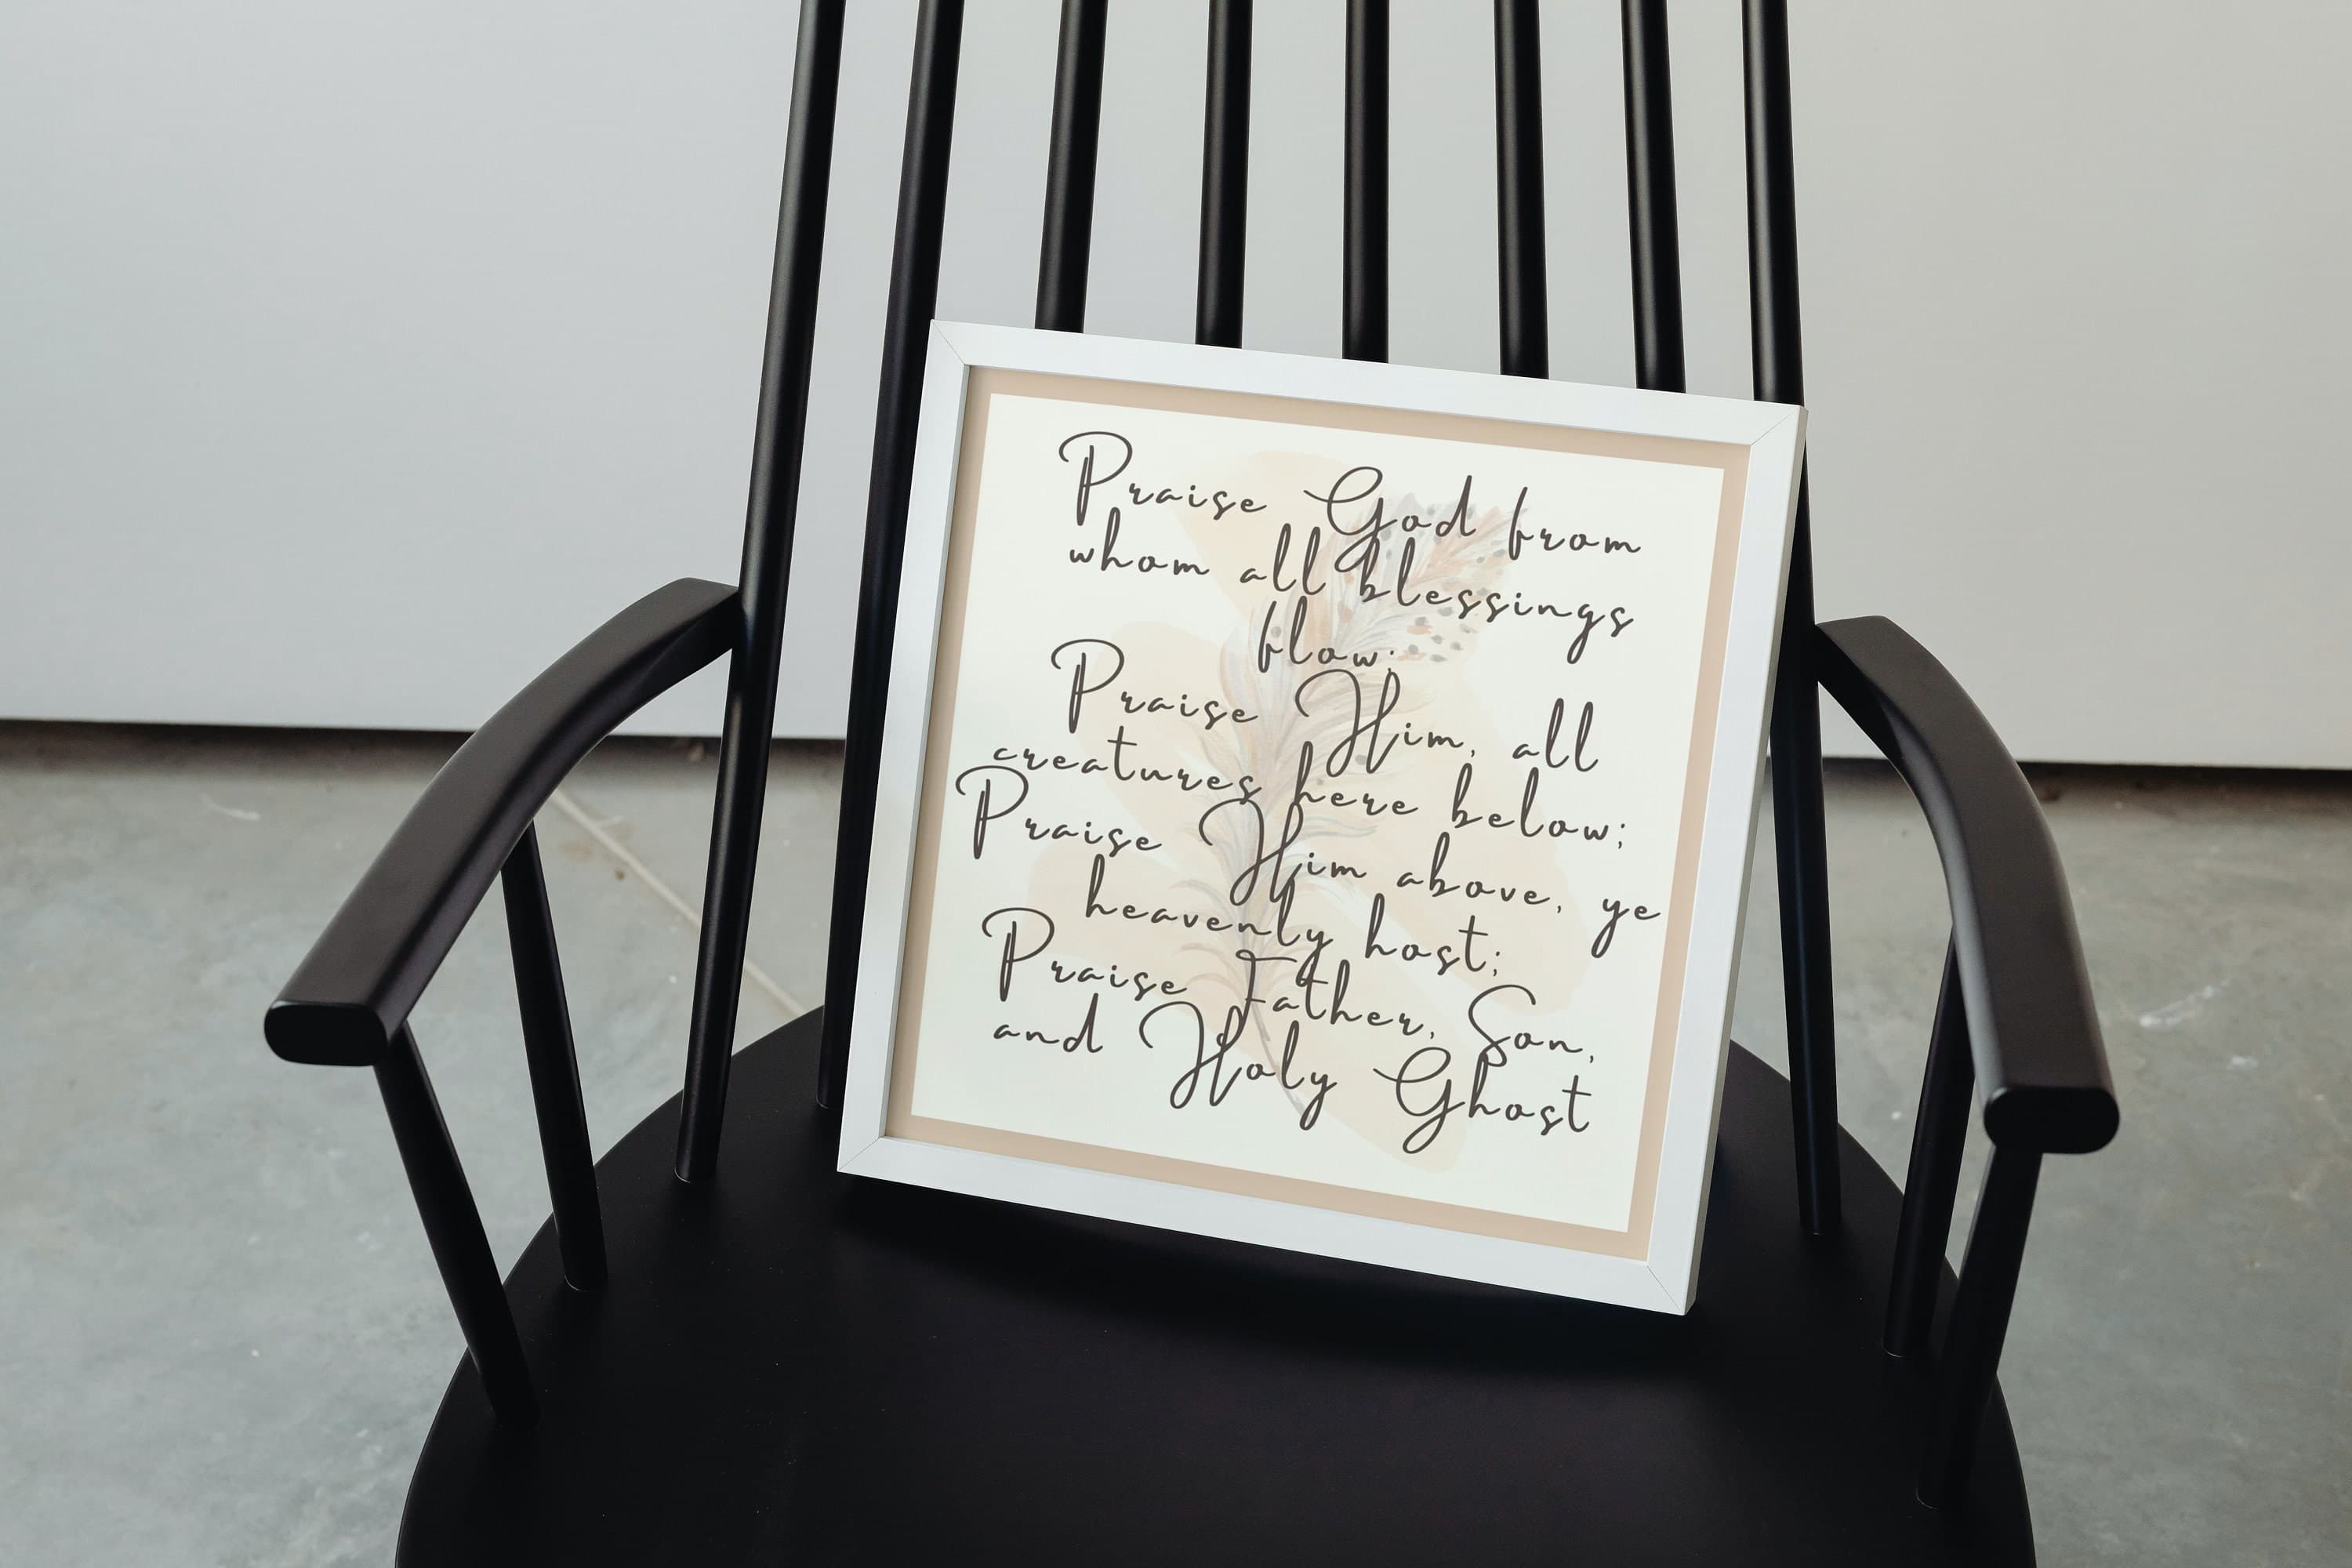 Praise God from
whom all blessings
flow;
Praise Him, all
creatures here below;
Praise Him above, ye
heavenly host;
Praise Father, Son,
and Holy Ghost